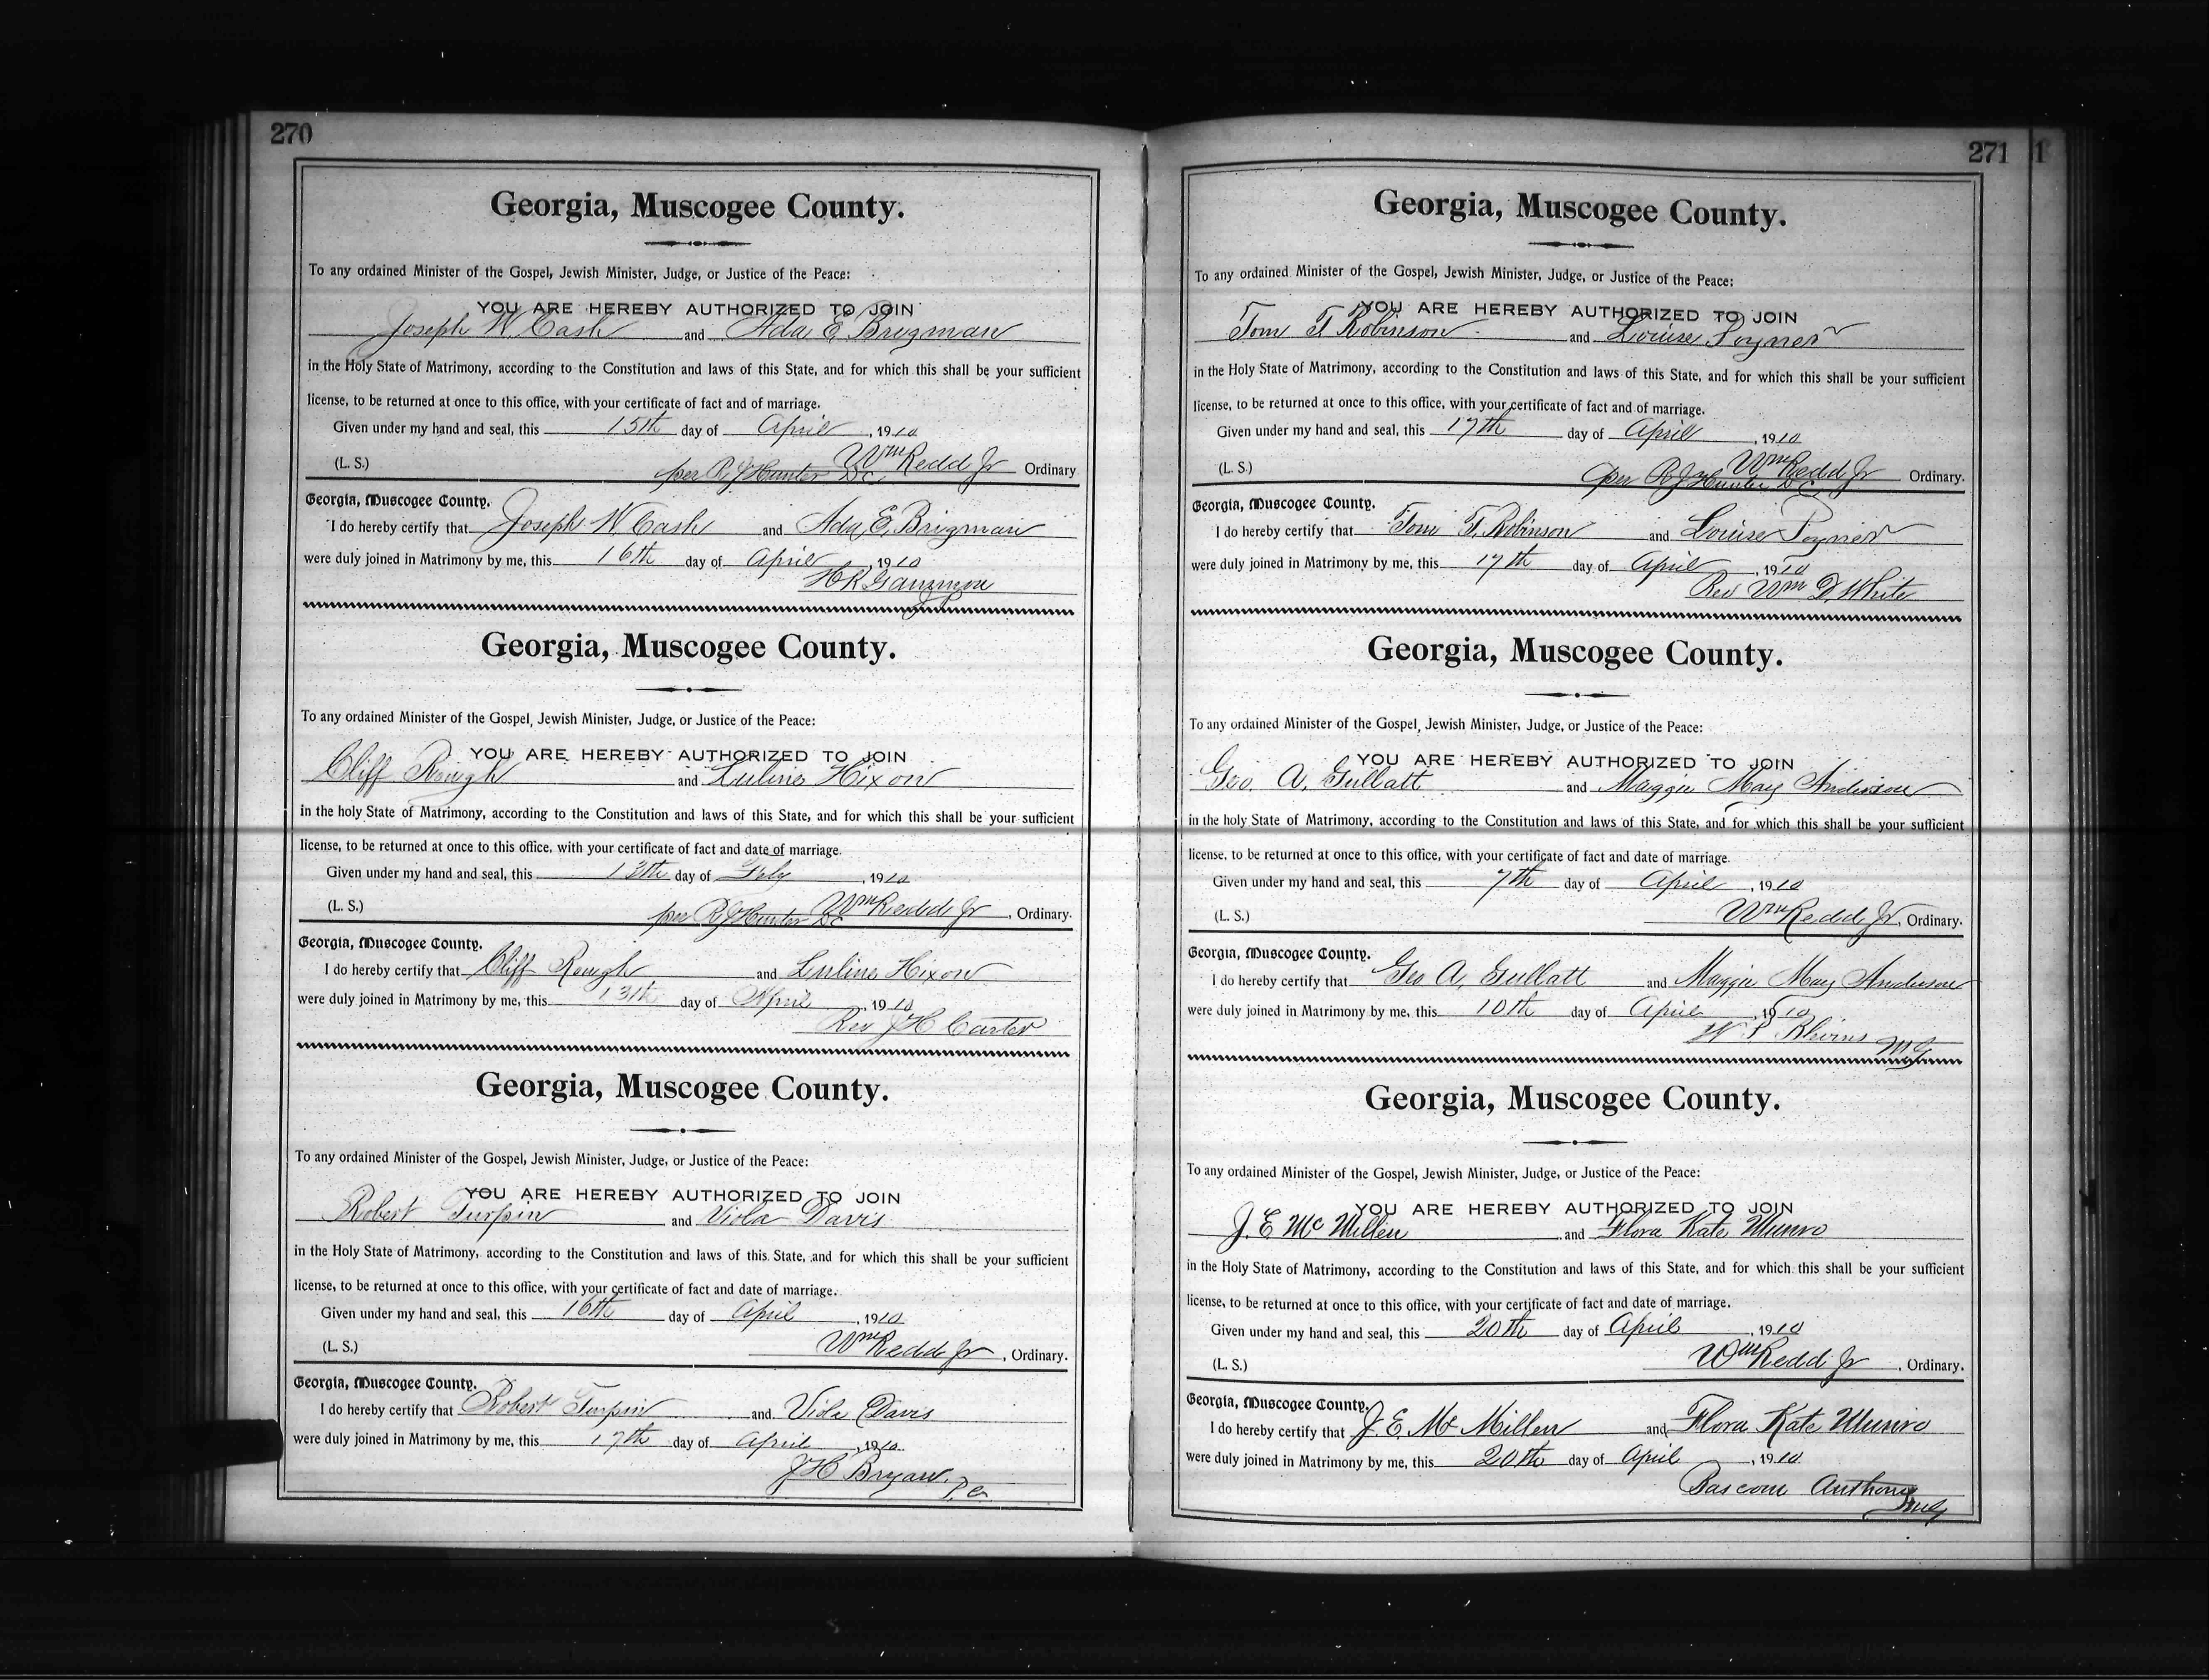 270
Georgia, Muscogee County.
To any ordained Minister of the Gospel, Jewish Minister, Judge, or Justice of the Peace:
YOU ARE HEREBY AUTHORIZED TO JOIN
Joseph W. Cash and Ada E. Brigman
in the Holy State of Matrimony, according to the Constitution and laws of this State, and for which this shall be your sufficient
license, to be returned at once to this office, with your certificate of fact and of marriage.
Given under my hand and seal, this 15th day of April, 1910
(L. S.) per R J Hunter D.C. Wm Redd Jr Ordinary
Georgia, Muscogee County.
I do hereby certify that Joseph W. Cash and Ada E. Brigman
were duly joined in Matrimony by me, this 16th day of April, 1910
H R Gammon
J P
Georgia, Muscogee County.
To any ordained Minister of the Gospel, Jewish Minister, Judge, or Justice of the Peace:
YOU ARE HEREBY AUTHORIZED TO JOIN
Cliff Rough and Luline Hixon
in the holy State of Matrimony, according to the Constitution and laws of this State, and for which this shall be your sufficient
license, to be returned at once to this office, with your certificate of fact and date of marriage.
Given under my hand and seal, this 12th day of Feby, 1910
(L. S.) per R J Hunter DC Wm Redd Jr, Ordinary.
Georgia, Muscogee County.
I do hereby certify that Cliff Rough and Luline Hixon
were duly joined in Matrimony by me, this 13th day of April, 1910
Rev J H Carter
Georgia, Muscogee County.
To any ordained Minister of the Gospel, Jewish Minister, Judge, or Justice of the Peace:
YOU ARE HEREBY AUTHORIZED TO JOIN
Robert Turpin and Viola Davis
in the Holy State of Matrimony, according to the Constitution and laws of this State, and for which this shall be your sufficient
license, to be returned at once to this office, with your certificate of fact and date of marriage.
Given under my hand and seal, this 16th day of April, 1910
(L. S.) Wm Redd Jr, Ordinary.
Georgia, Muscogee County.
I do hereby certify that Robert Turpin and Viola Davis
were duly joined in Matrimony by me, this 17th day of April, 1910.
J H Bryan.
271 1
Georgia, Muscogee County.
To any ordained Minister of the Gospel, Jewish Minister, Judge, or Justice of the Peace:
YOU ARE HEREBY AUTHORIZED TO JOIN
Tom T. Robinson and Louise Poyner
in the Holy State of Matrimony, according to the Constitution and laws of this State, and for which this shall be your sufficient
license, to be returned at once to this office, with your certificate of fact and of marriage.
Given under my hand and seal, this 17th day of April, 1910
(L. S.) per R J Hunter D.C. Wm Redd Jr Ordinary.
Georgia, Muscogee County.
I do hereby certify that Tom T. Robinson and Louise Poyner
were duly joined in Matrimony by me, this 17th day of April, 1910
Rev Wm D. White
Georgia, Muscogee County.
To any ordained Minister of the Gospel, Jewish Minister, Judge, or Justice of the Peace:
YOU ARE HEREBY AUTHORIZED TO JOIN
Geo. A. Gullatt and Maggie May Anderson
in the holy State of Matrimony, according to the Constitution and laws of this State, and for which this shall be your sufficient
license, to be returned at once to this office, with your certificate of fact and date of marriage.
Given under my hand and seal, this 7th day of April, 1910
(L. S.) Wm Redd Jr, Ordinary.
Georgia, Muscogee County.
I do hereby certify that Geo A. Gullatt and Maggie May Anderson
were duly joined in Matrimony by me, this 10th day of April, 1910
M G
Georgia, Muscogee County.
To any ordained Minister of the Gospel, Jewish Minister, Judge, or Justice of the Peace:
YOU ARE HEREBY AUTHORIZED TO JOIN
J. E. McMillen and Flora Kate Munro
in the Holy State of Matrimony, according to the Constitution and laws of this State, and for which this shall be your sufficient
license, to be returned at once to this office, with your certificate of fact and date of marriage.
Given under my hand and seal, this 20th day of April, 1910
(L. S.) Wm Redd Jr, Ordinary.
Georgia, Muscogee County.
I do hereby certify that J. E. McMillen and Flora Kate Munro
were duly joined in Matrimony by me, this 20th day of April, 1910
Bascom Anthony
M G